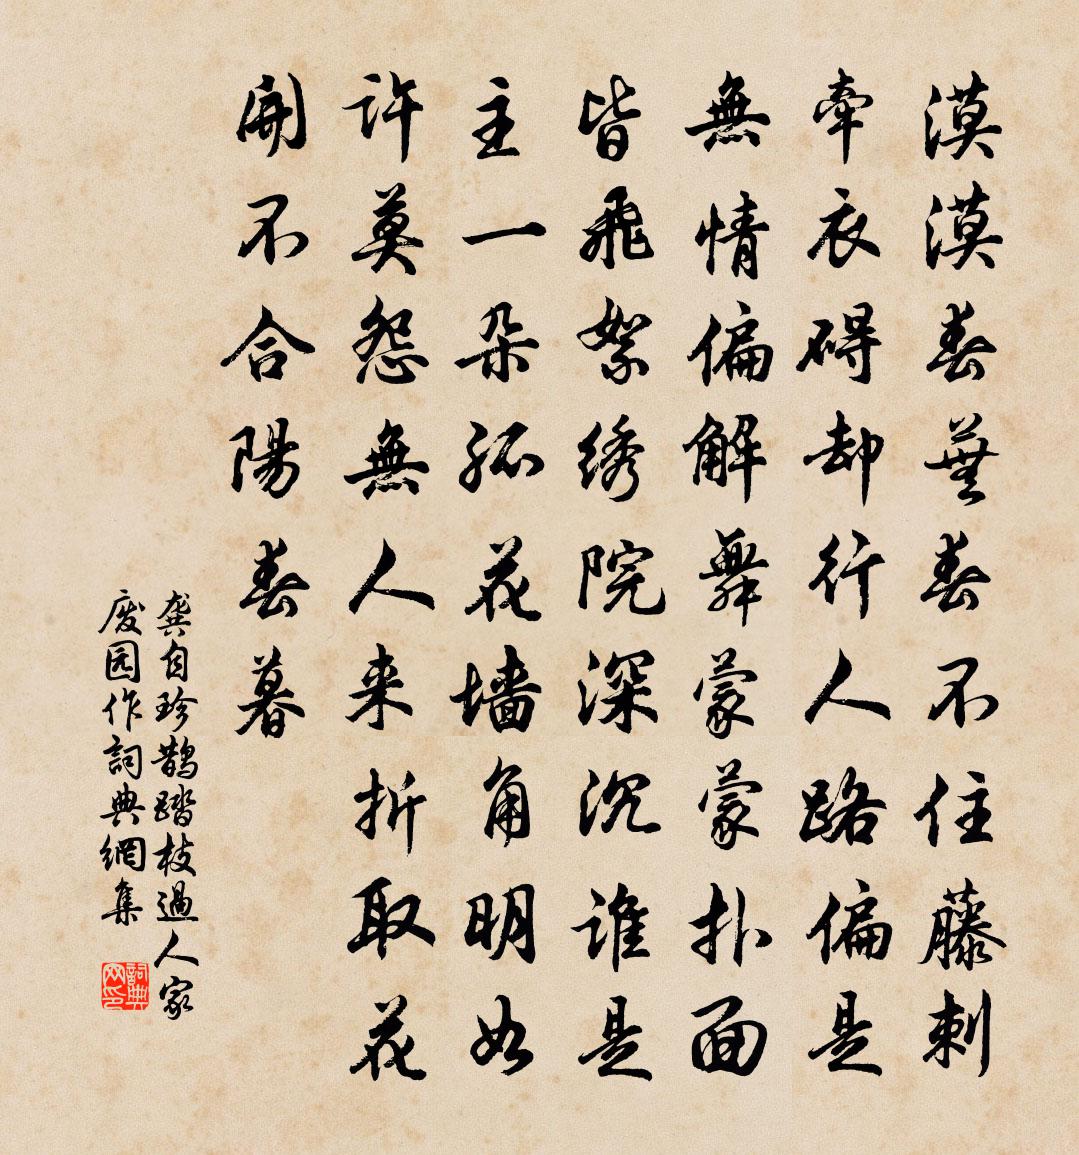 漠漠春蕪春不住藤刺
牽衣碍却行人路偏是
無情偏解舞蒙蒙扑面
皆飛絮绣院深沉谁是
主一朵孤花墙角明如
許莫怨無人来折取花
開不合陽春暮
龚自珍鹊踏枝過人家
废园作詞典網集
詞典网印